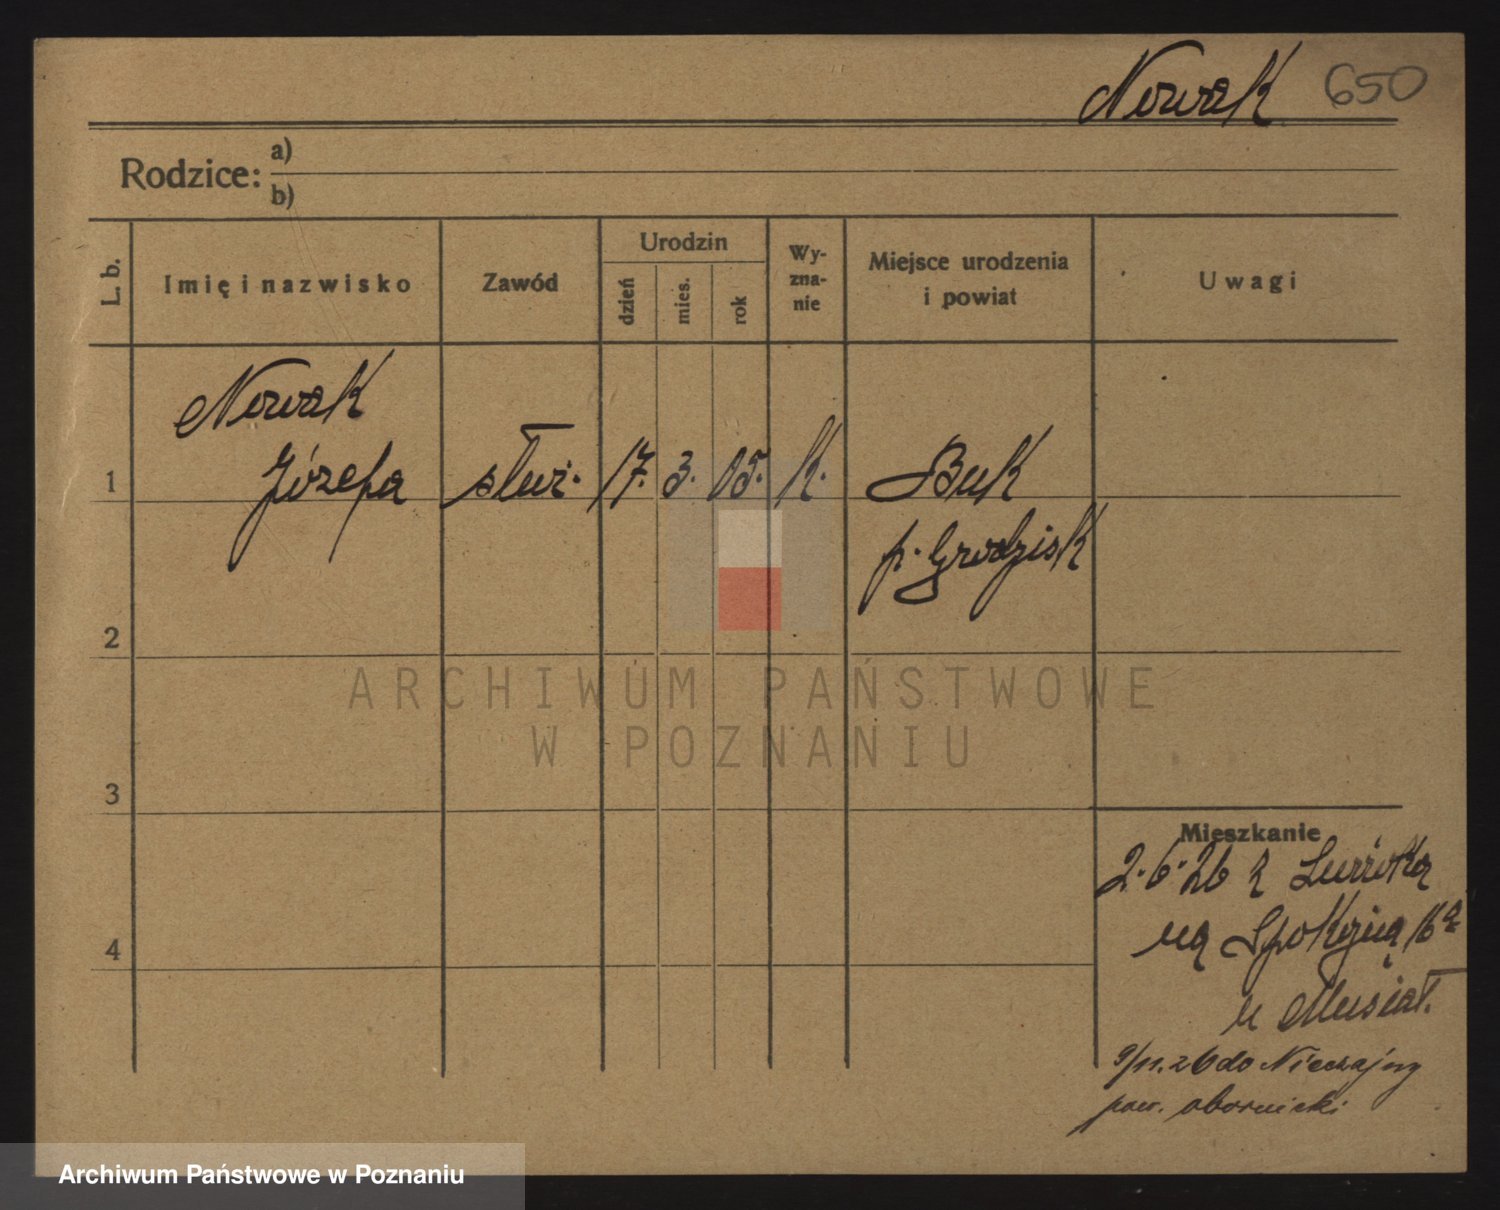 Nowak 650
Rodzice: a)
b)
L. b.
Imię i nazwisko
Zawód
Urodzin
dzień
mies.
rok
Wy-
zna-
nie
Miejsce urodzenia
i powiat
Uwagi
Nowak
1 Józefa służ. 17. 3. 05. k. Buk
p. Grodzisk
2
3
4
Mieszkanie
2.6.26 z
na Spokojną 16a
u Musiał.
9/11.26 do Nieczajny
pow. obornicki
ARCHIWUM PAŃSTWOWE
W POZNANIU
Archiwum Państwowe w Poznaniu